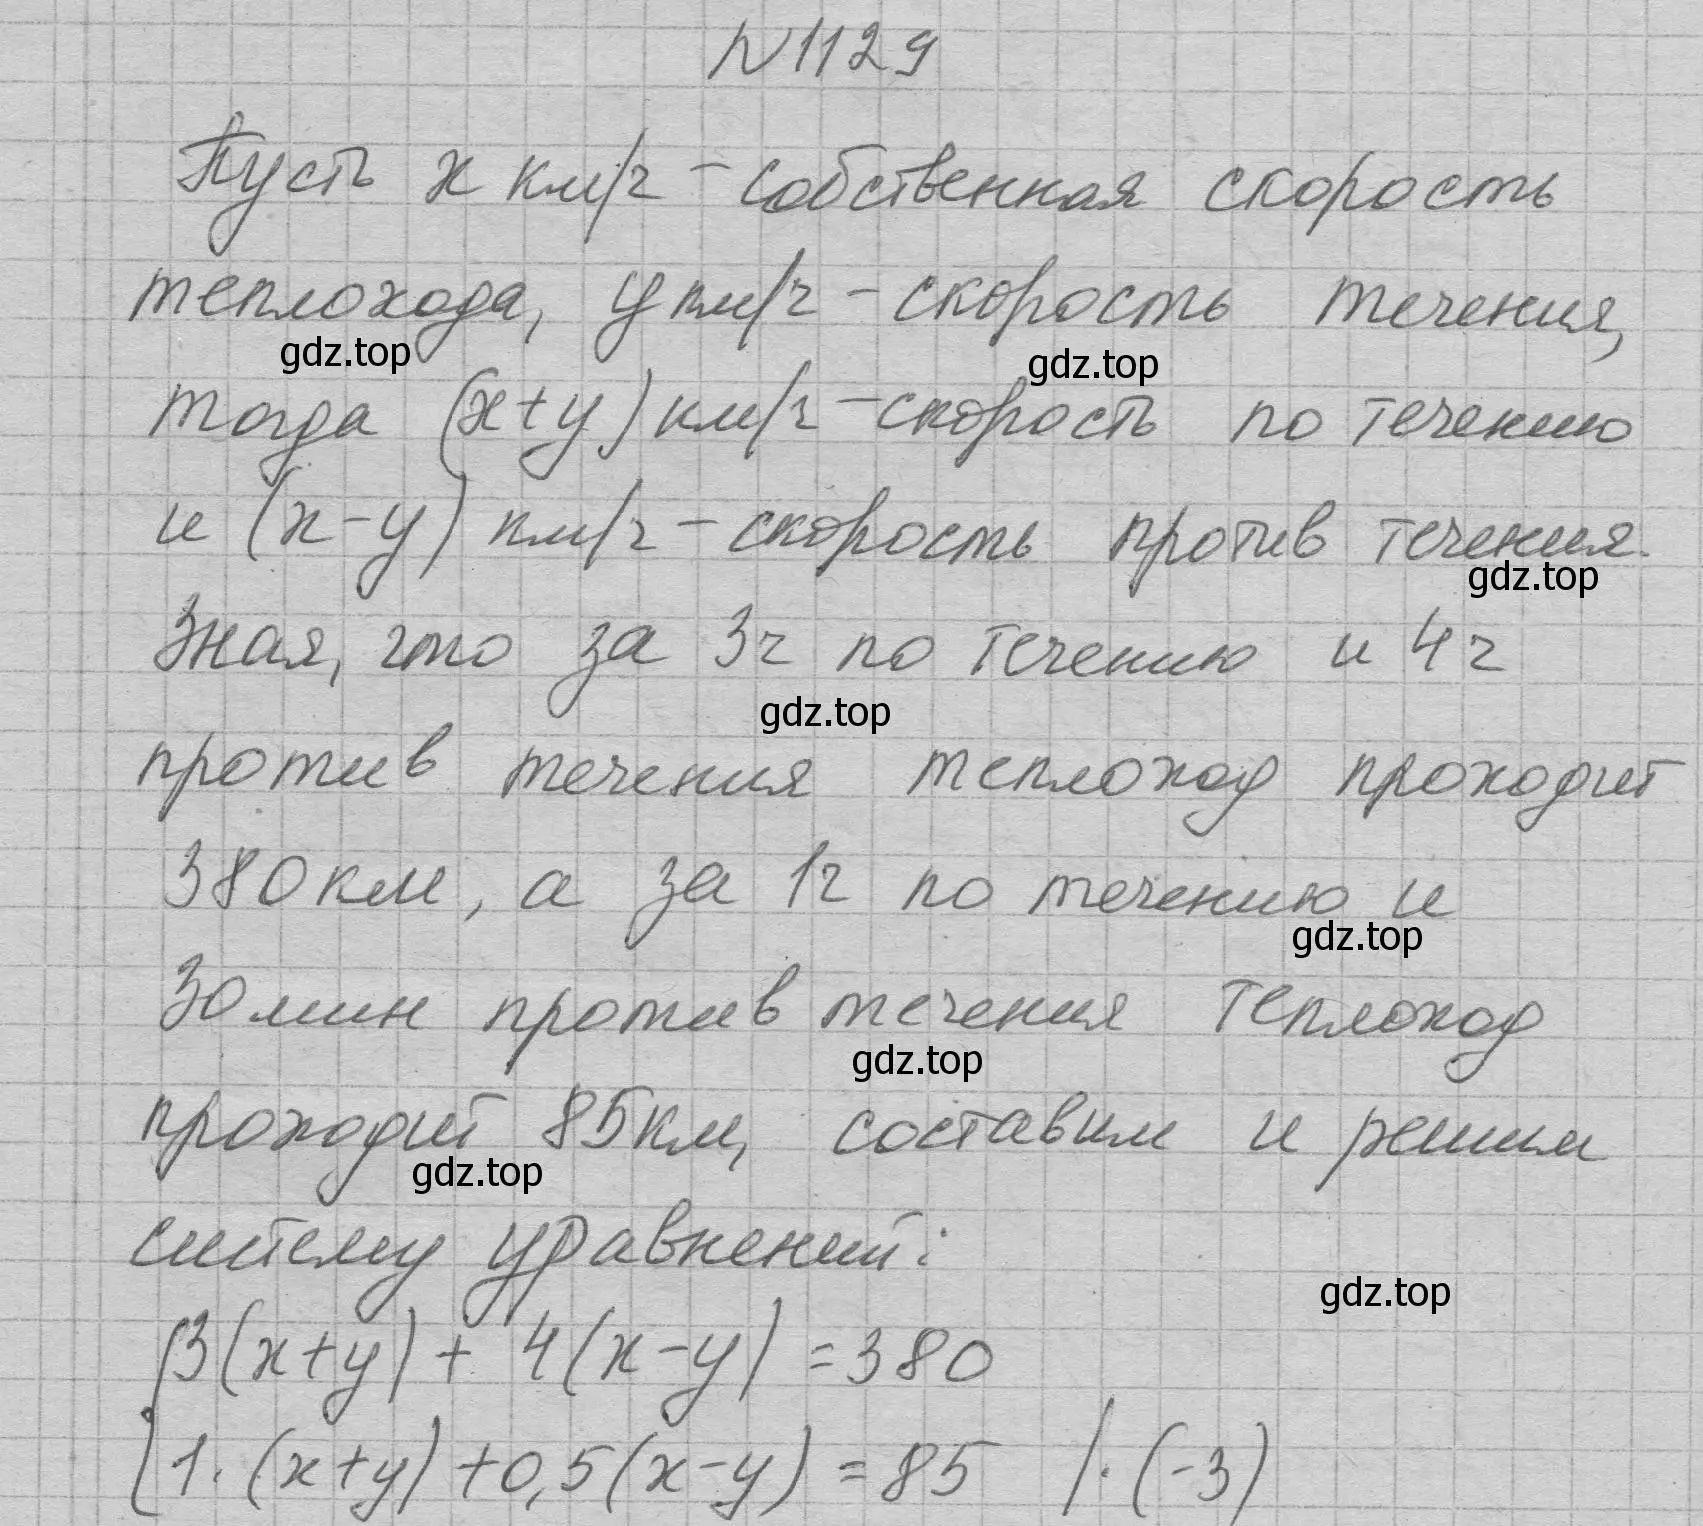 №1129
Пусть x км/ч - собственная скорость
теплохода, y км/ч - скорость течения,
gdz.top
gdz.top
тогда (x+y) км/ч - скорость по течению
и (x-y) км/ч - скорость против течения.
gdz.top
Зная, что за 3ч по течению и 4ч
gdz.top
против течения теплоход проходит
380км, а за 1ч по течению и
gdz.top
30мин против течения теплоход
gdz.top
проходит 85км, составим и решим
gdz.top
систему уравнений:
gdz.top
{3(x+y)+4(x-y)=380
{1·(x+y)+0,5(x-y)=85 |·(-3)